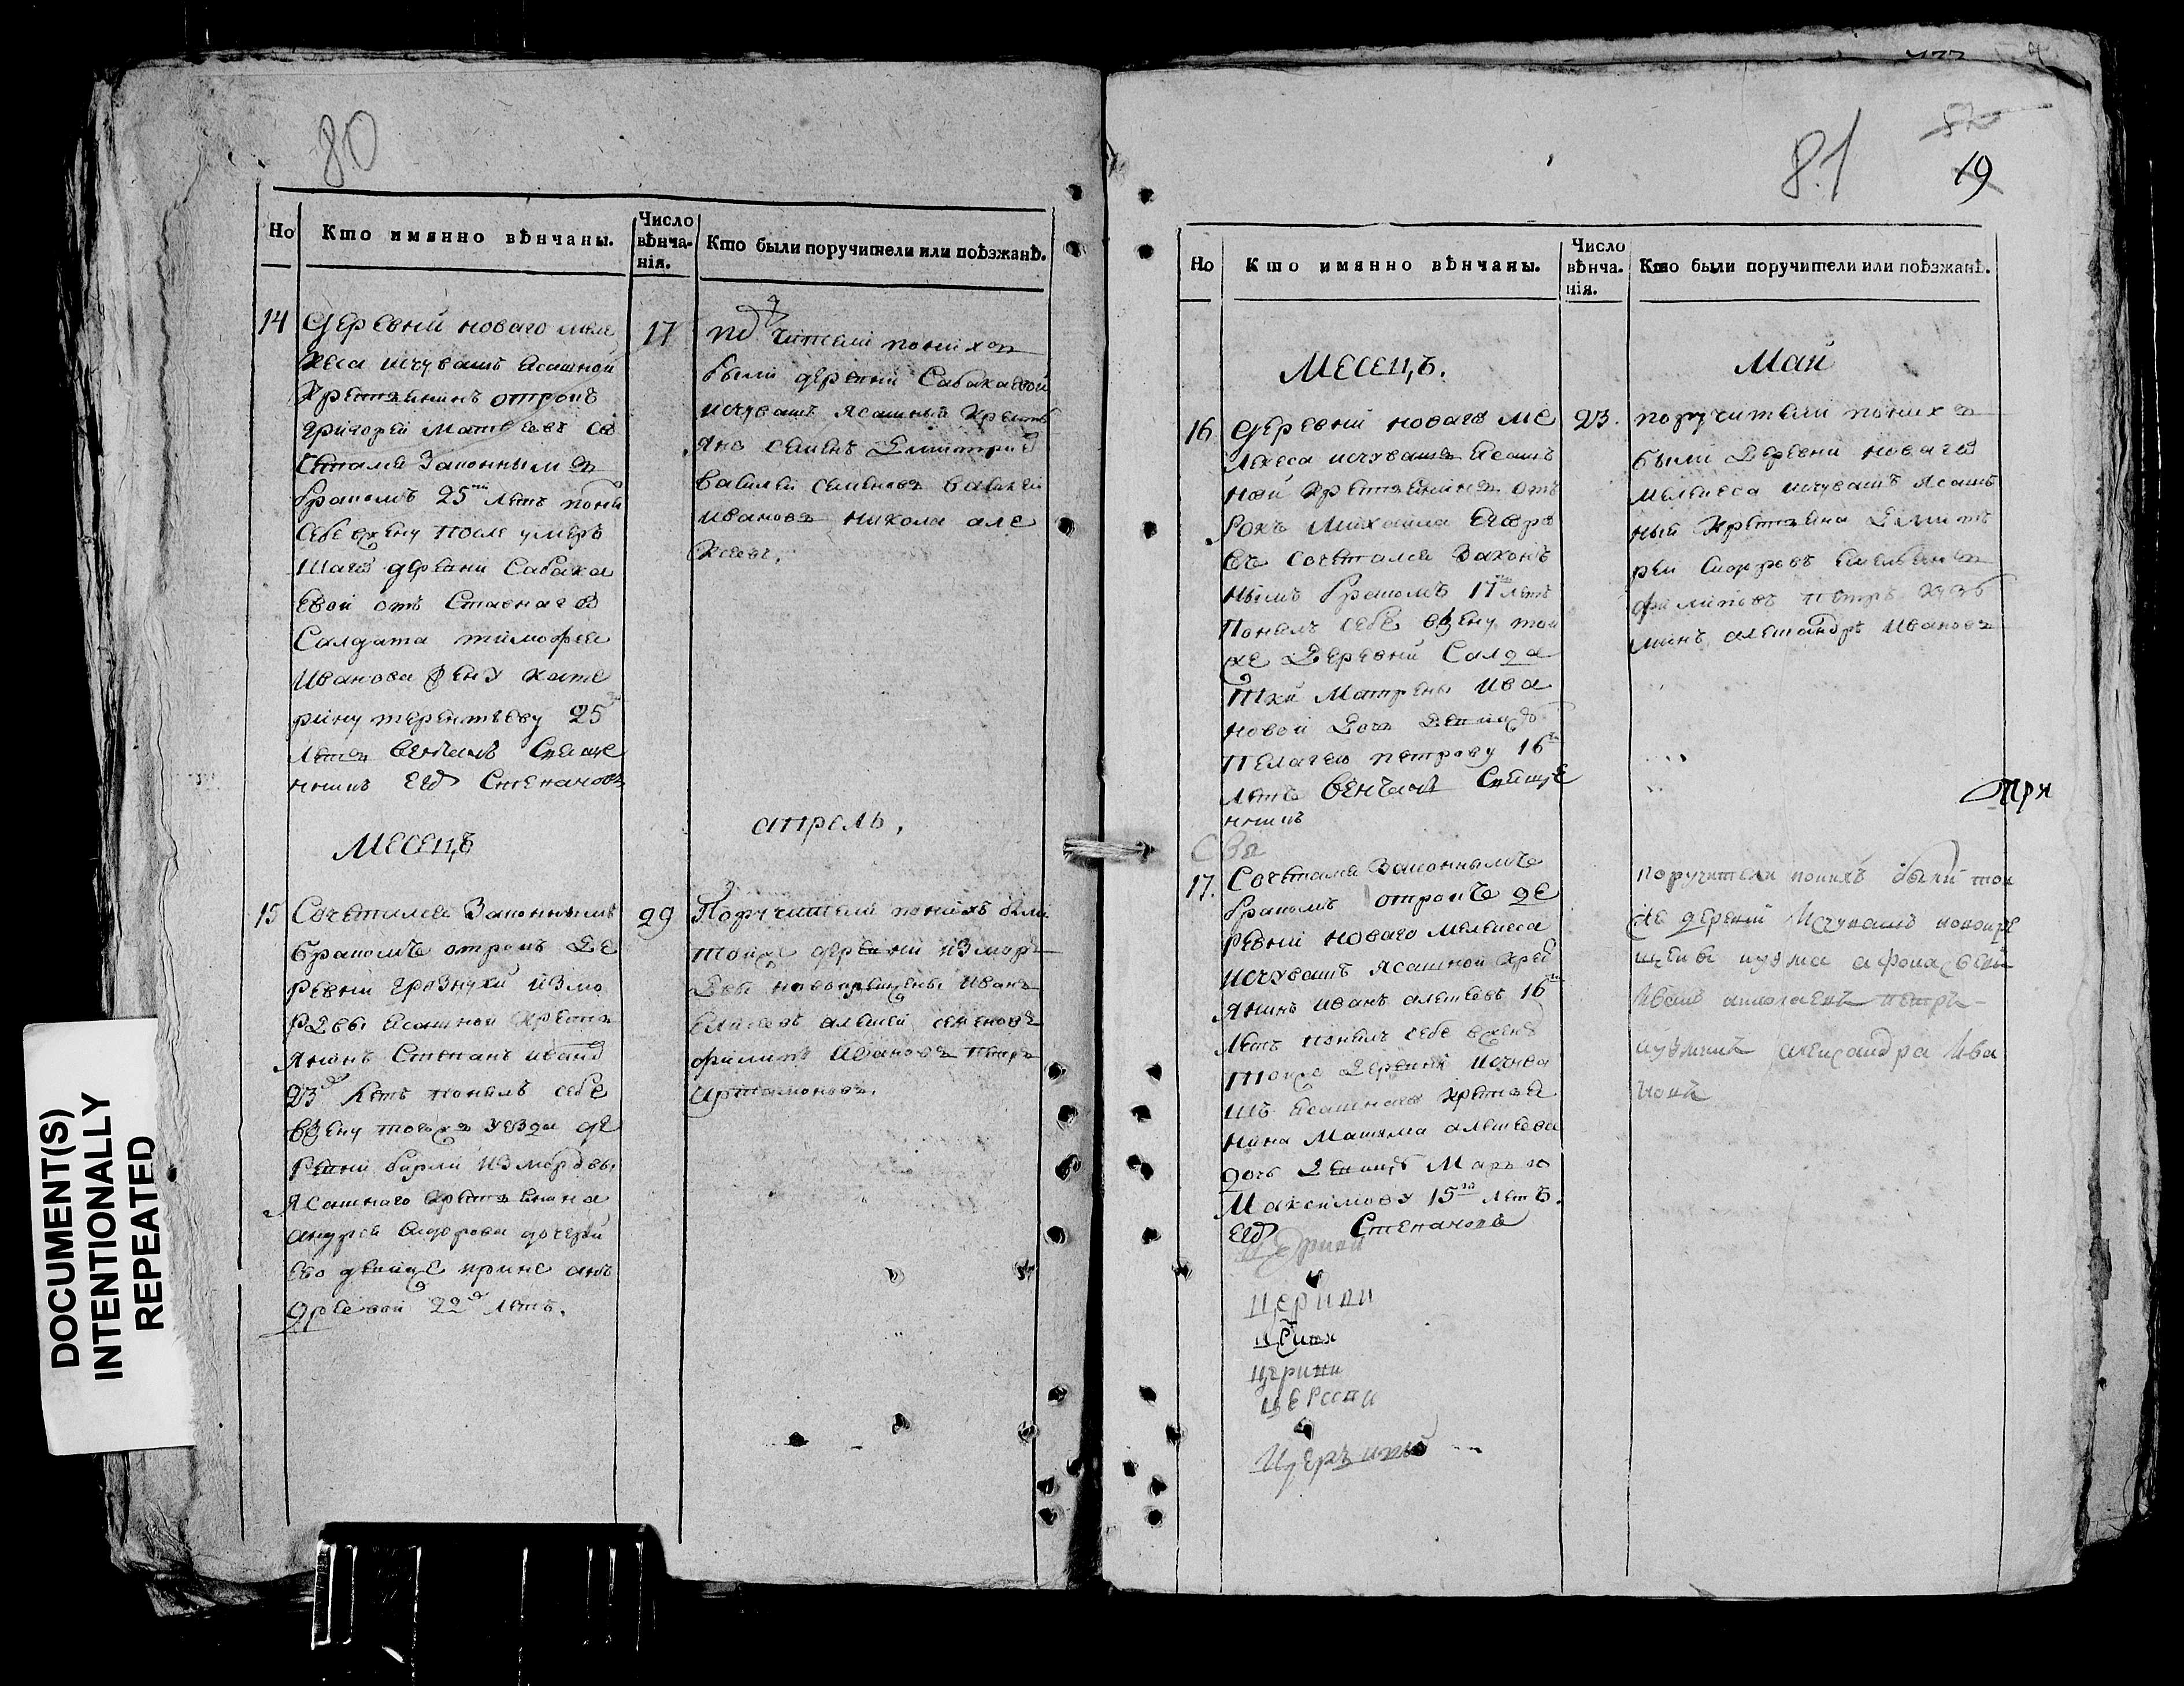 80
Но
Кто имянно вѣнчаны.
Число вѣнча-
нія.
Кто были поручители или поѣзжанѣ.
14
Деревни новаго меле
кеса исчувашъ ясашной
крестьянинъ отрокъ
Григорей Матвеевъ со
четался законнымъ
бракомъ 25 летъ понял
себе вжену после умерь
шаго деревни Сабака
евой отъ Ставнагω
Салдата тимофея
Иванова жену кате
рину терентьеву 25
летъ венчалъ Свяще
нникъ Егωръ Степановъ
17
поручители поних
были деревни Сабакаевой
исчувашъ ясашныя крестья
яне семенъ Дмитрие
василей семеновъ василей
ивановъ никола але
ксеевъ.
МЕСЕЦЪ
апрель,
15
Сочетался законнымъ
бракомъ отрокъ де
ревни грязнухи измо
рдвы ясашной кресть
янинъ Степанъ ивано
23 летъ понялъ себе
вжену тогожъ уезда де
ревни бирли измордвы
ясашнаго крестьянина
андрея сидорова дочерь
ево девицу ирине анъ
дреевой 22 летъ.
29
Поручители понихъ были
тойже деревни измор
двы новокрещены Иванъ
елисеевъ алексей семеновъ
филипъ Ивановъ петръ
артамоновъ.
81
19
Но
Кто имянно вѣнчаны.
Число
вѣнча-
нія.
Кто были поручители или поѣзжанѣ.
МЕСЕЦЪ.
Май
16
деревни новаго ме
лекеса исчувашъ ясашъ
ной крестьянинъ отъ
рокъ Михаила Егоро
въ сочетался законъ
нымъ бракомъ 17 летъ
Понялъ себе вжену той
же деревни Салда
тки Матрены ива
новой дочь девицу
Пелагею петрову 16
летъ венчалъ Свяще
нникъ
23.
поручители поних
были деревни новагω
мелекеса исчувашъ ясашъ
ный крестьяна Дмитъ
рей Сидоровъ емельянъ
филиповъ петръ кузь
минъ, александръ Ивановъ
при
17.
Сочетался законнымъ
бракомъ отрокъ де
ревни новаго мелекеса
исчувашъ ясашной крес
янинъ иванъ алексеевъ 16
летъ понялъ себе вжену
тойже деревни исчува
шъ ясашнаго крестья
нина Максима алексеева
дочь девицу Марью
Максимову 15 летъ.
Егωръ Степановъ
поручители понихъ были той
же деревни Исчувашъ новокре
щены кузма афонасьевъ
Иванъ
кузминъ александра Ива
новъ
церкви
церкви
церкви